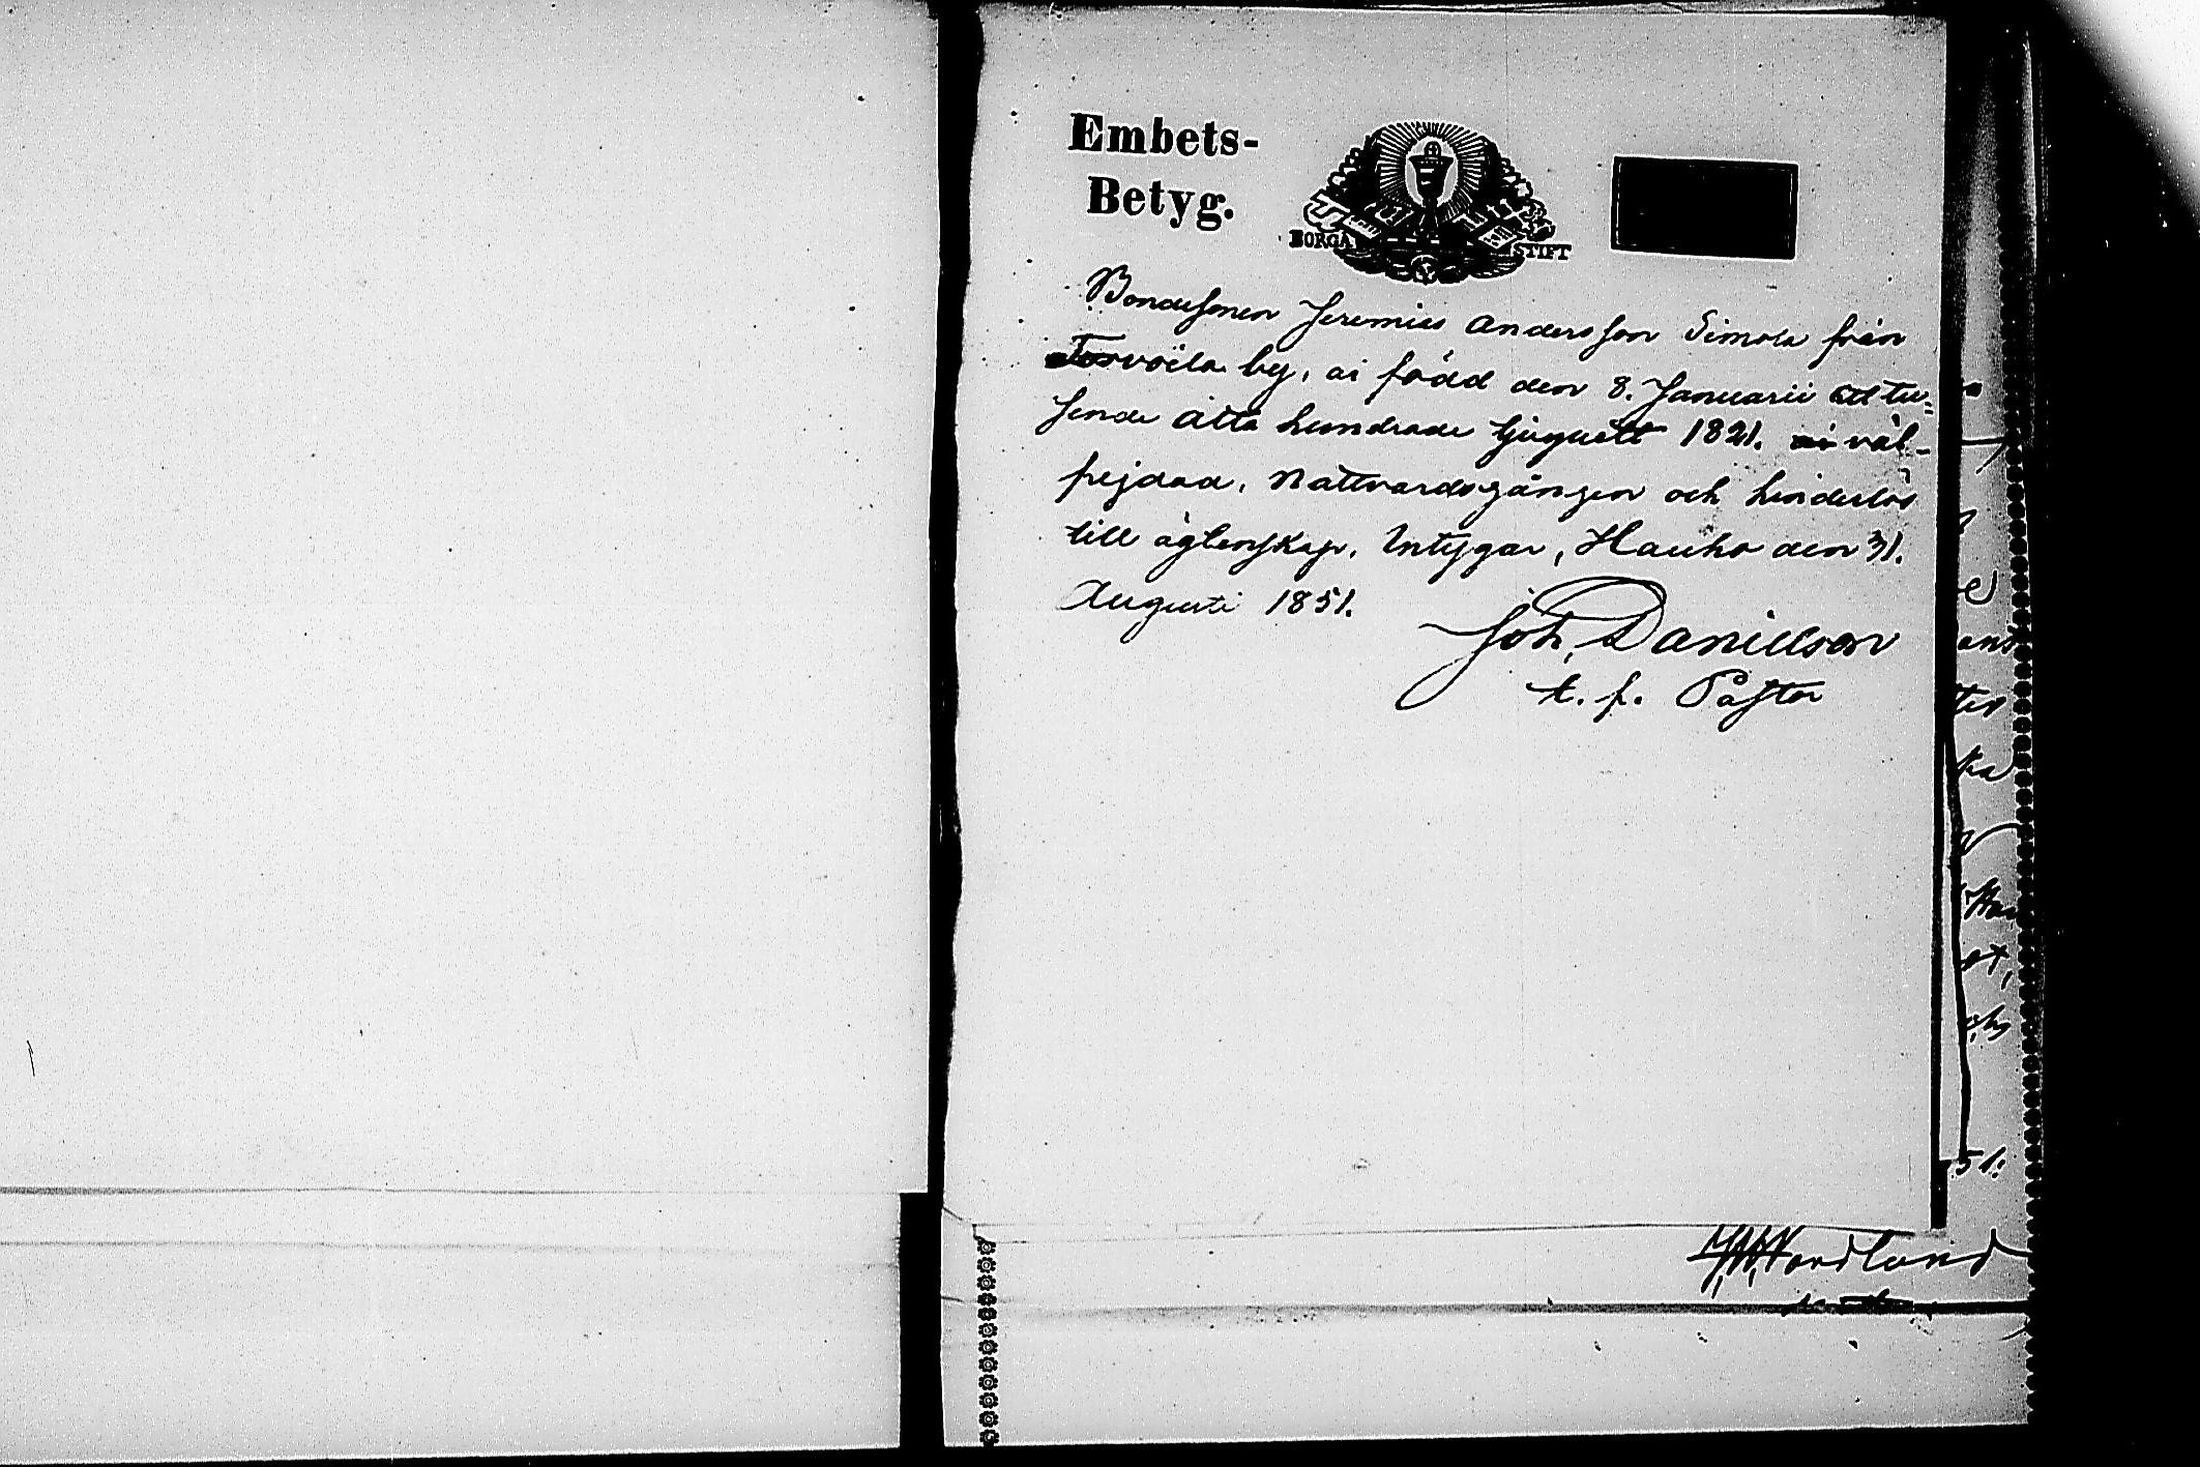 Embets-
Betyg.
BORGÅ STIFT
Bondesonen Jeremias Andersson Simola från
Torvoila by, är född den 8. Januarii Ett tu=
sende åtta hundrade tjuguett 1821. är väl-
frejdad, Nattvardsgången och hinderlös
till ägtenskap. Intygar, Hauho den 31.
Augusti 1851.
Joh. Danielson
t. f. Pastor
51.
Nordlund